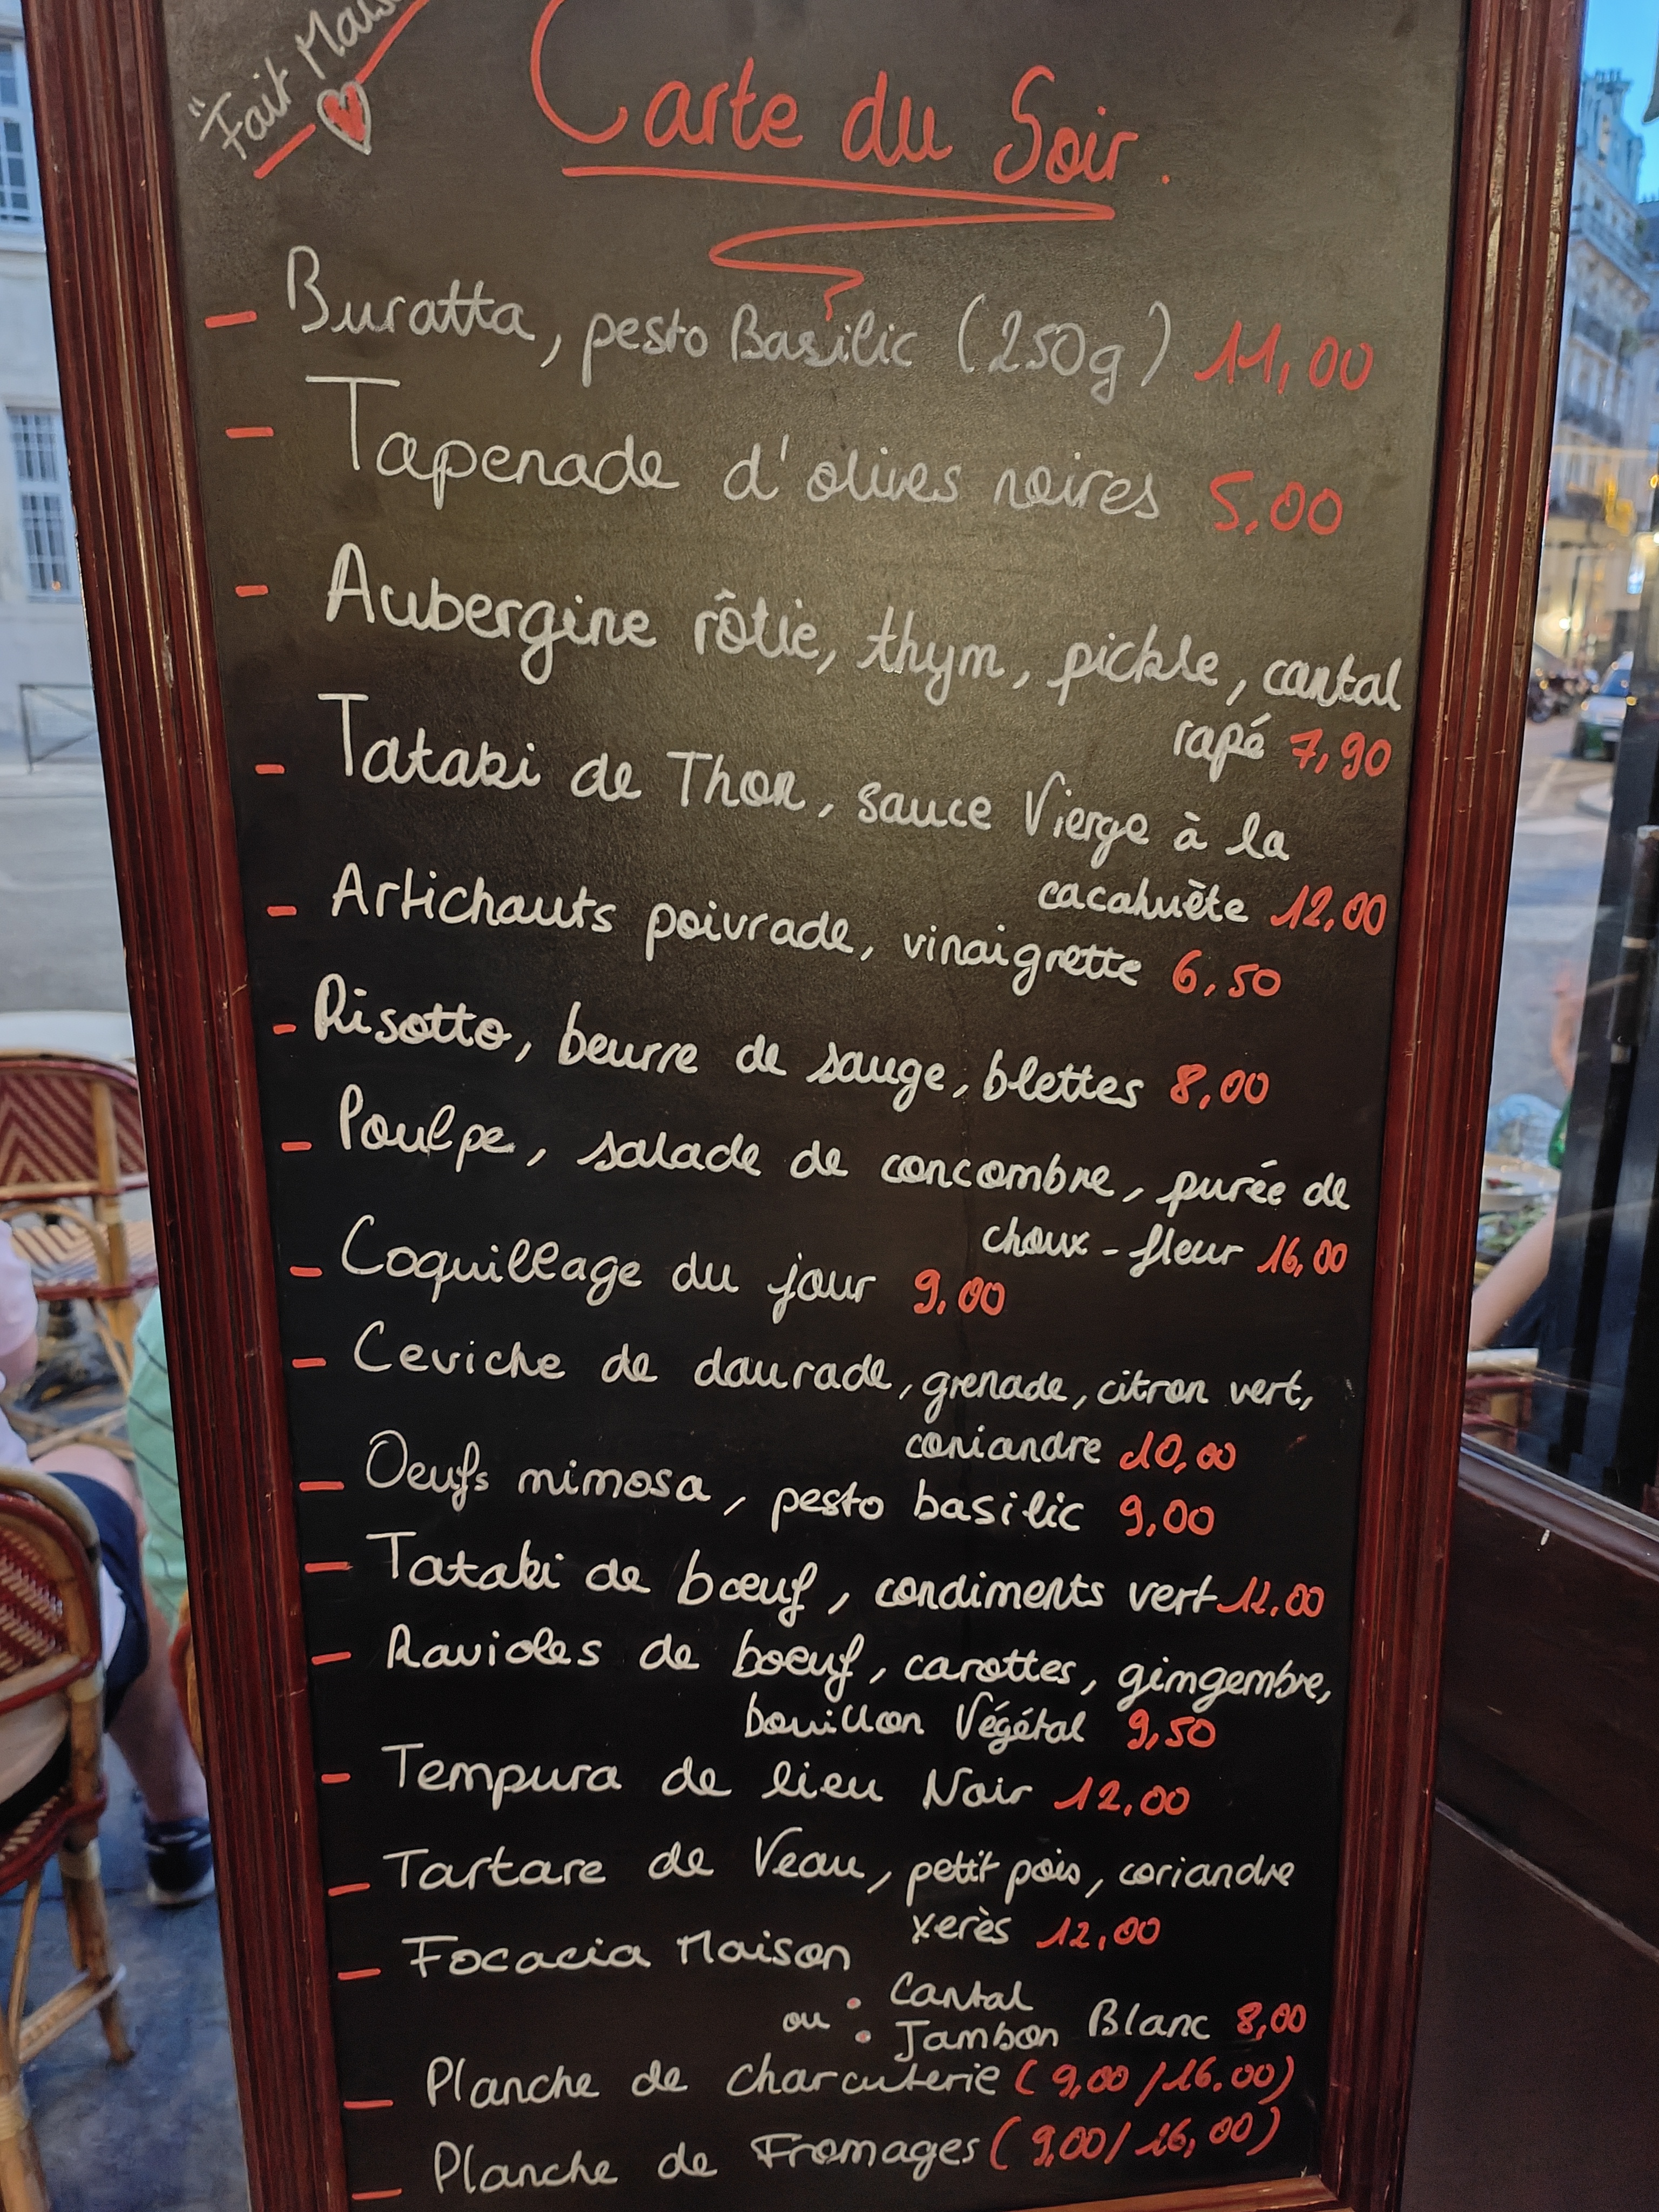 "Fait Mais
Carte du Soir.
- Buratta, pesto Basilic (250g) 11,00
- Tapenade d'olives noires 5,00
- Aubergine rôtie, thym, pickle, cantal
rapé 7,90
- Tataki de Thon, sauce Vierge à la
cacahuète 12,00
- Artichauts poivrade, vinaigrette 6,50
- Risotto, beurre de sauge, blettes 8,00
- Poulpe, salade de concombre, purée de
choux-fleur 16,00
- Coquillage du jour 9,00
- Ceviche de daurade, grenade, citron vert,
coriandre 10,00
- Oeufs mimosa, pesto basilic 9,00
- Tataki de bœuf, condiments vert 12.00
- Ravioles de boeuf, carottes, gimgembre,
bouillon Végétal 9,50
- Tempura de lieu Noir 12,00
- Tartare de Veau, petit pois, coriandre
xerès 12,00
- Focacia Maison
ou : Cantal
Jambon Blanc 8,00
- Planche de charcuterie (9,00/16.00)
- Planche de Fromages (9,00/16,00)